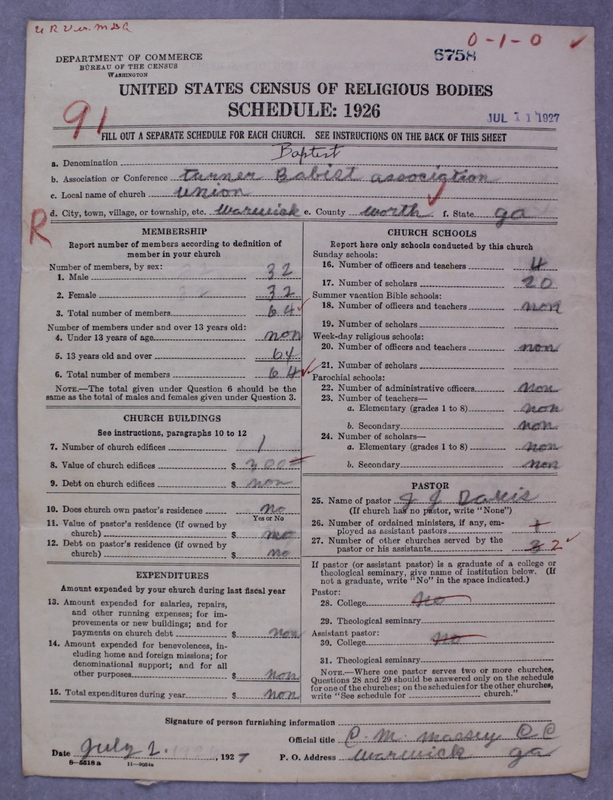 U R V er. M B A
0-1-0
6758
DEPARTMENT OF COMMERCE
BUREAU OF THE CENSUS
WASHINGTON
UNITED STATES CENSUS OF RELIGIOUS BODIES
SCHEDULE: 1926
JUL 11 1927
91
FILL OUT A SEPARATE SCHEDULE FOR EACH CHURCH. SEE INSTRUCTIONS ON THE BACK OF THIS SHEET
a. Denomination Baptist
b. Association or Conference turner Babist association
c. Local name of church union
d. City, town, village, or township, etc. warwick e. County worth f. State ga
R
MEMBERSHIP
Report number of members according to definition of
member in your church
Number of members, by sex:
1. Male 32
2. Female 32
3. Total number of members 64
Number of members under and over 13 years old:
4. Under 13 years of age non
5. 13 years old and over 64
6. Total number of members 64
NOTE.—The total given under Question 6 should be
same as the total of males and females given under Question 3.
CHURCH BUILDINGS
See instructions, paragraphs 10 to 12
7. Number of church edifices 1
8. Value of church edifices $ 300
9. Debt on church edifices $ non
10. Does church own pastor's residence no
Yes or No
11. Value of pastor's residence (if owned by
church) $ no
12. Debt on pastor's residence (if owned by
church) $ no
EXPENDITURES
Amount expended by your church during last fiscal year
13. Amount expended for salaries, repairs,
and other running expenses; for im-
provements or new buildings; and for
payments on church debt $ non
14. Amount expended for benevolences, in-
cluding home and foreign missions; for
denominational support; and for all
other purposes $ non
15. Total expenditures during year $ non
CHURCH SCHOOLS
Report here only schools conducted by this church
Sunday schools:
16. Number of officers and teachers 4
17. Number of scholars 20
Summer vacation Bible schools:
18. Number of officers and teachers non
19. Number of scholars
Week-day religious schools:
20. Number of officers and teachers non
21. Number of scholars
Parochial schools:
22. Number of administrative officers non
23. Number of teachers—
a. Elementary (grades 1 to 8) non
b. Secondary non
24. Number of scholars—
a. Elementary (grades 1 to 8) non
b. Secondary non
PASTOR
25. Name of pastor J J Davis
(If church has no pastor, write "None")
26. Number of ordained ministers, if any, em-
ployed as assistant pastors
27. Number of other churches served by the
pastor or his assistants 3 2
If pastor (or assistant pastor) is a graduate of a college or
theological seminary, give name of institution below. (If
not a graduate, write "No" in the space indicated.)
Pastor:
28. College No
29. Theological seminary
Assistant pastor:
30. College No
31. Theological seminary
NOTE.—Where one pastor serves two or more churches,
Questions 28 and 29 should be answered only on the schedule
for one of the churches; on the schedules for the other churches,
write "See schedule for church."
Signature of person furnishing information
Official title C. M. Massey C C
Date July 2. 1927 P. O. Address warwick ga
8-5518a 11-9054a